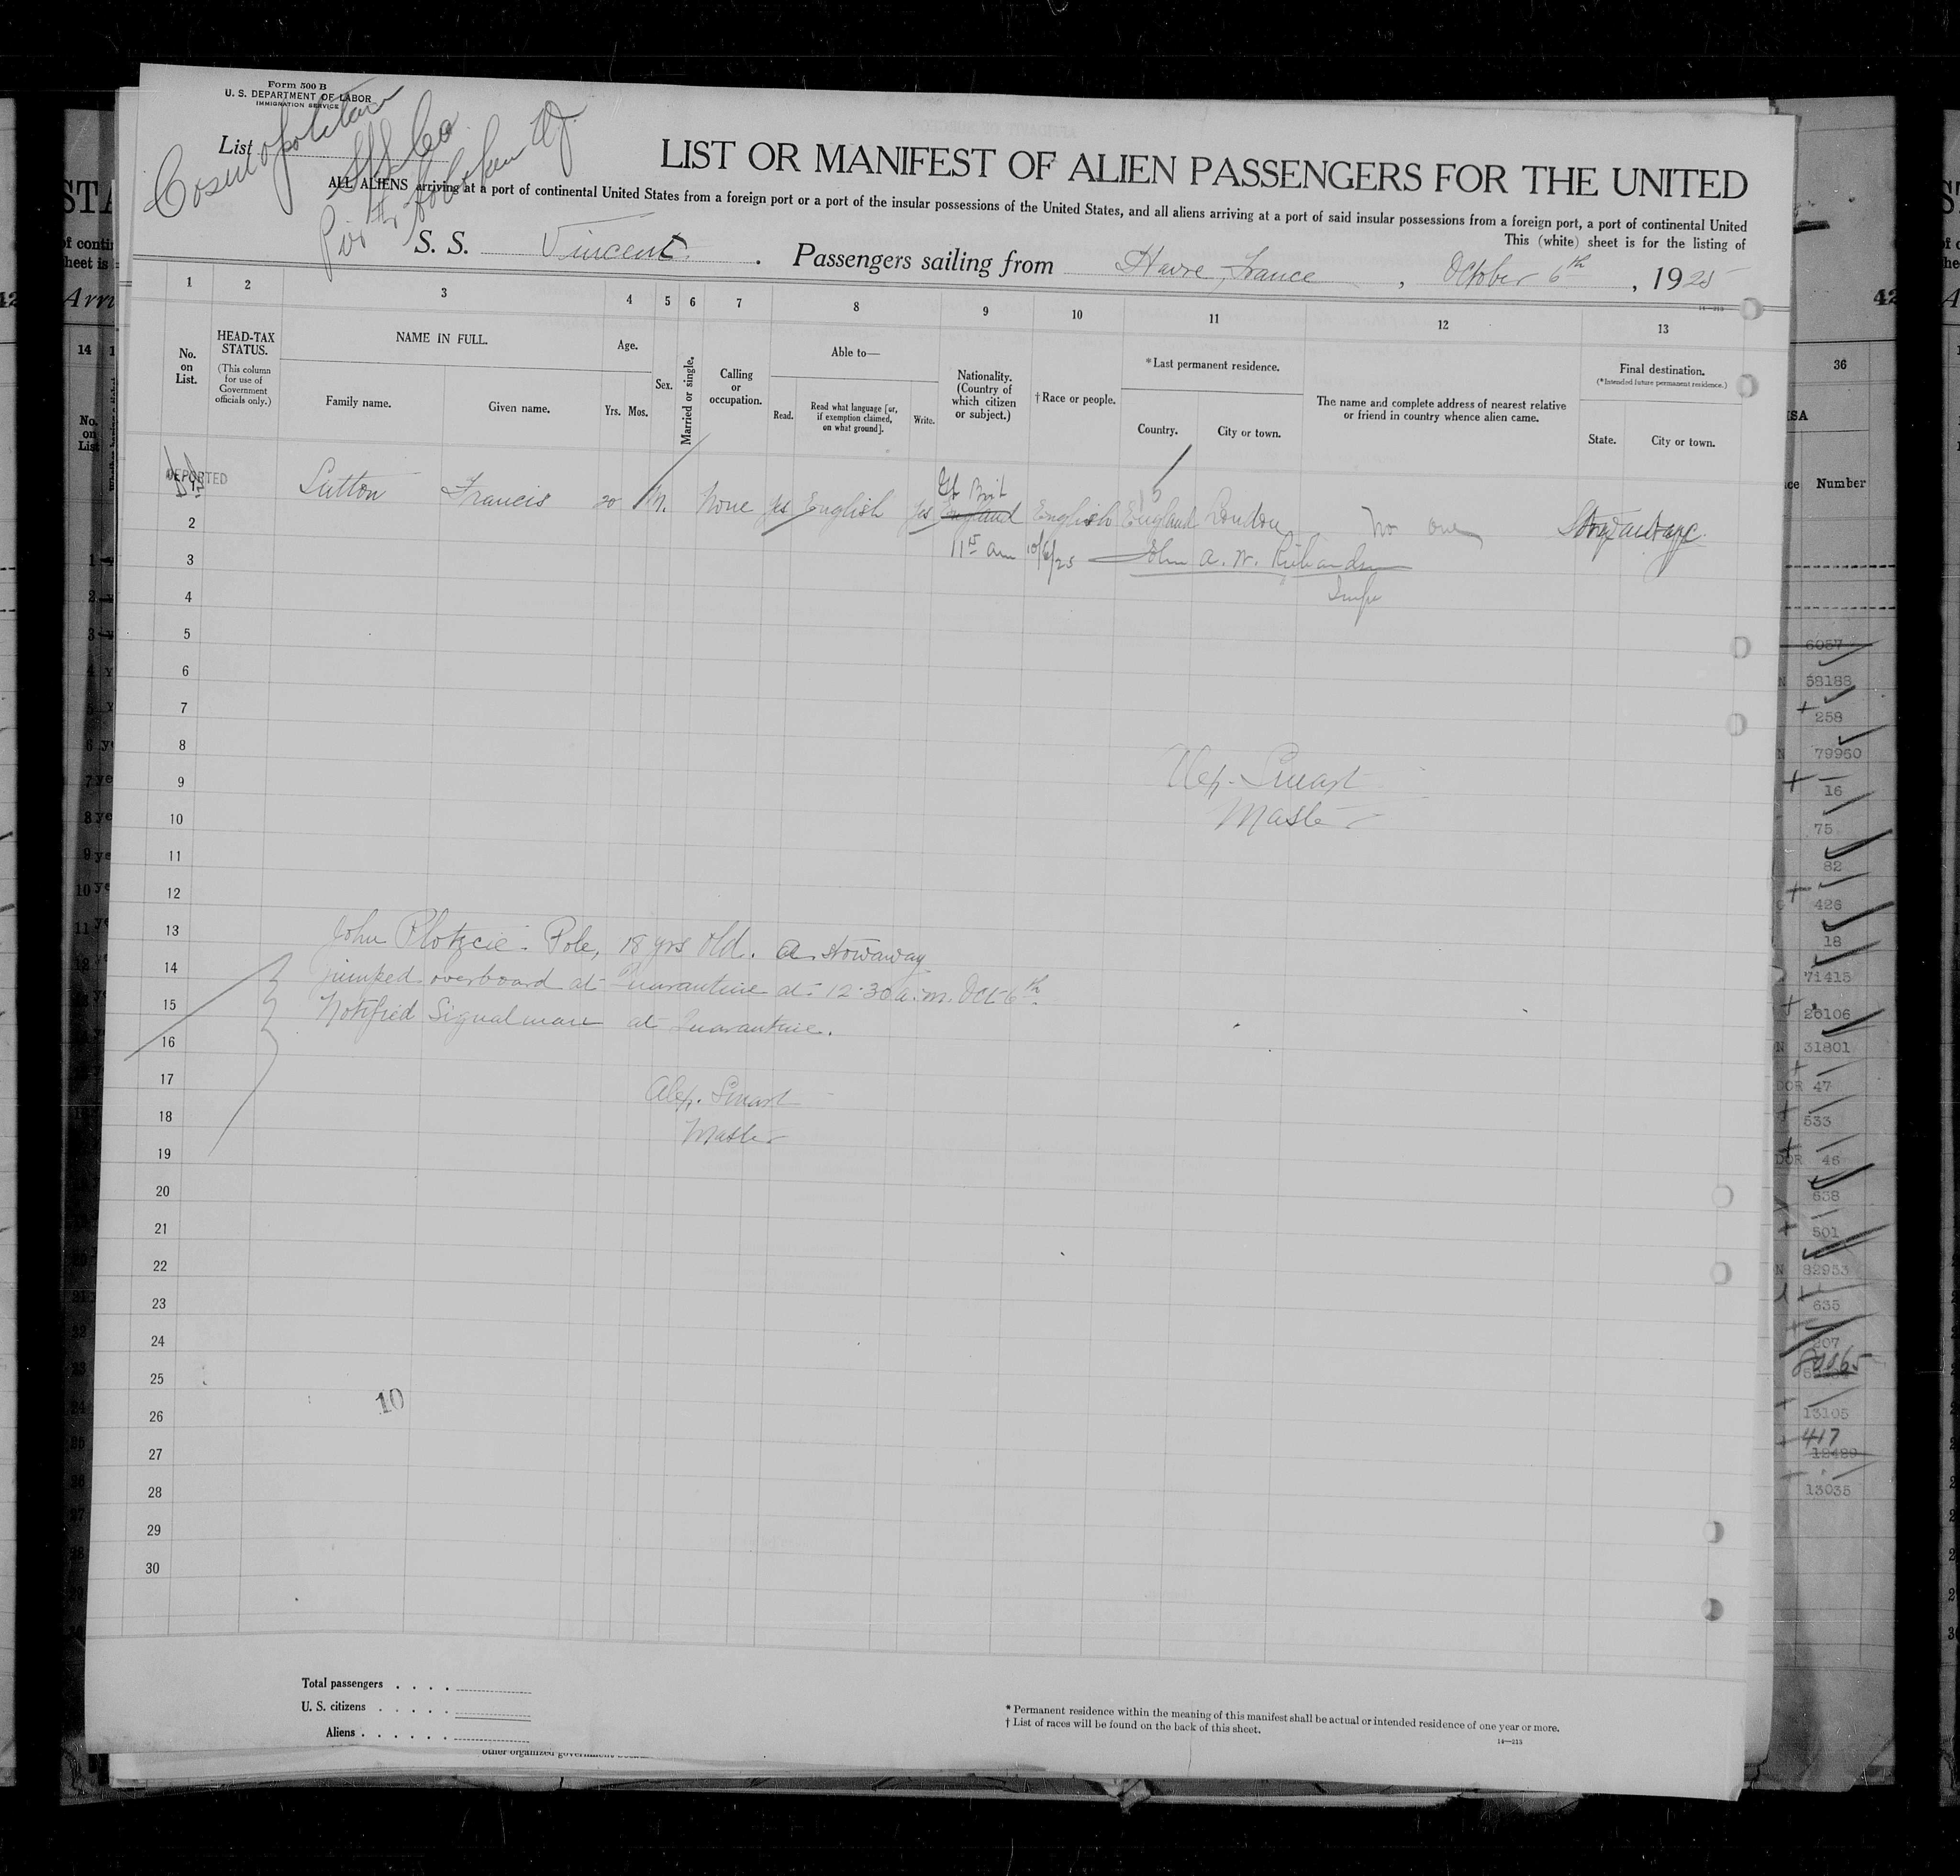 Form 500 B
U. S. DEPARTMENT OF LABOR
IMMIGRATION SERVICE
List
Cosmopolitan
SS Co
Pier Hoboken NJ
LIST OR MANIFEST OF ALIEN PASSENGERS FOR THE UNITED
ALL ALIENS arriving at a port of continental United States from a foreign port or a port of the insular possessions of the United States, and all aliens arriving at a port of said insular possessions from a foreign port, a port of continental United
This (white) sheet is for the listing of
S. S. Vincent. Passengers sailing from Havre, France, October 6th, 1925
1 2 3 4 5 6 7 8 9 10 11 12 13
No. on List.
HEAD-TAX STATUS.
(This column for use of Government officials only.)
NAME IN FULL.
Family name. Given name.
Age.
Yrs. Mos.
Sex.
Married or single.
Calling or occupation.
Able to—
Read. Read what language [or, if exemption claimed, on what ground]. Write.
Nationality. (Country of which citizen or subject.)
†Race or people.
*Last permanent residence.
Country. City or town.
The name and complete address of nearest relative or friend in country whence alien came.
Final destination.
(*Intended future permanent residence.)
State. City or town.
DEPORTED
1 Sutton Francis 20 M. None yes English yes England Gt Brit English England London No one Stowaway
11 15 am 10/6/25 John A. W. Richardson
Insp
2
3
4
5
6
7
8
9
10
11
12
Alex. Smart
Master
13
14
15
16
17
18
19
20
21
22
23
24
25
26
27
28
29
30
John Plotzcie - Pole, 18 yrs old. a stowaway
jumped overboard at Quarantine at 12.30 a.m. Oct 6th
Notified Signalman at Quarantine.
Alex. Smart
Master
10
Total passengers
U. S. citizens
Aliens
* Permanent residence within the meaning of this manifest shall be actual or intended residence of one year or more.
† List of races will be found on the back of this sheet.
14—213
36
Number
6057
58188
258
79950
16
75
82
426
18
71415
26106
31801
47
533
46
638
501
82953
635
207
13105
417
12429
13035